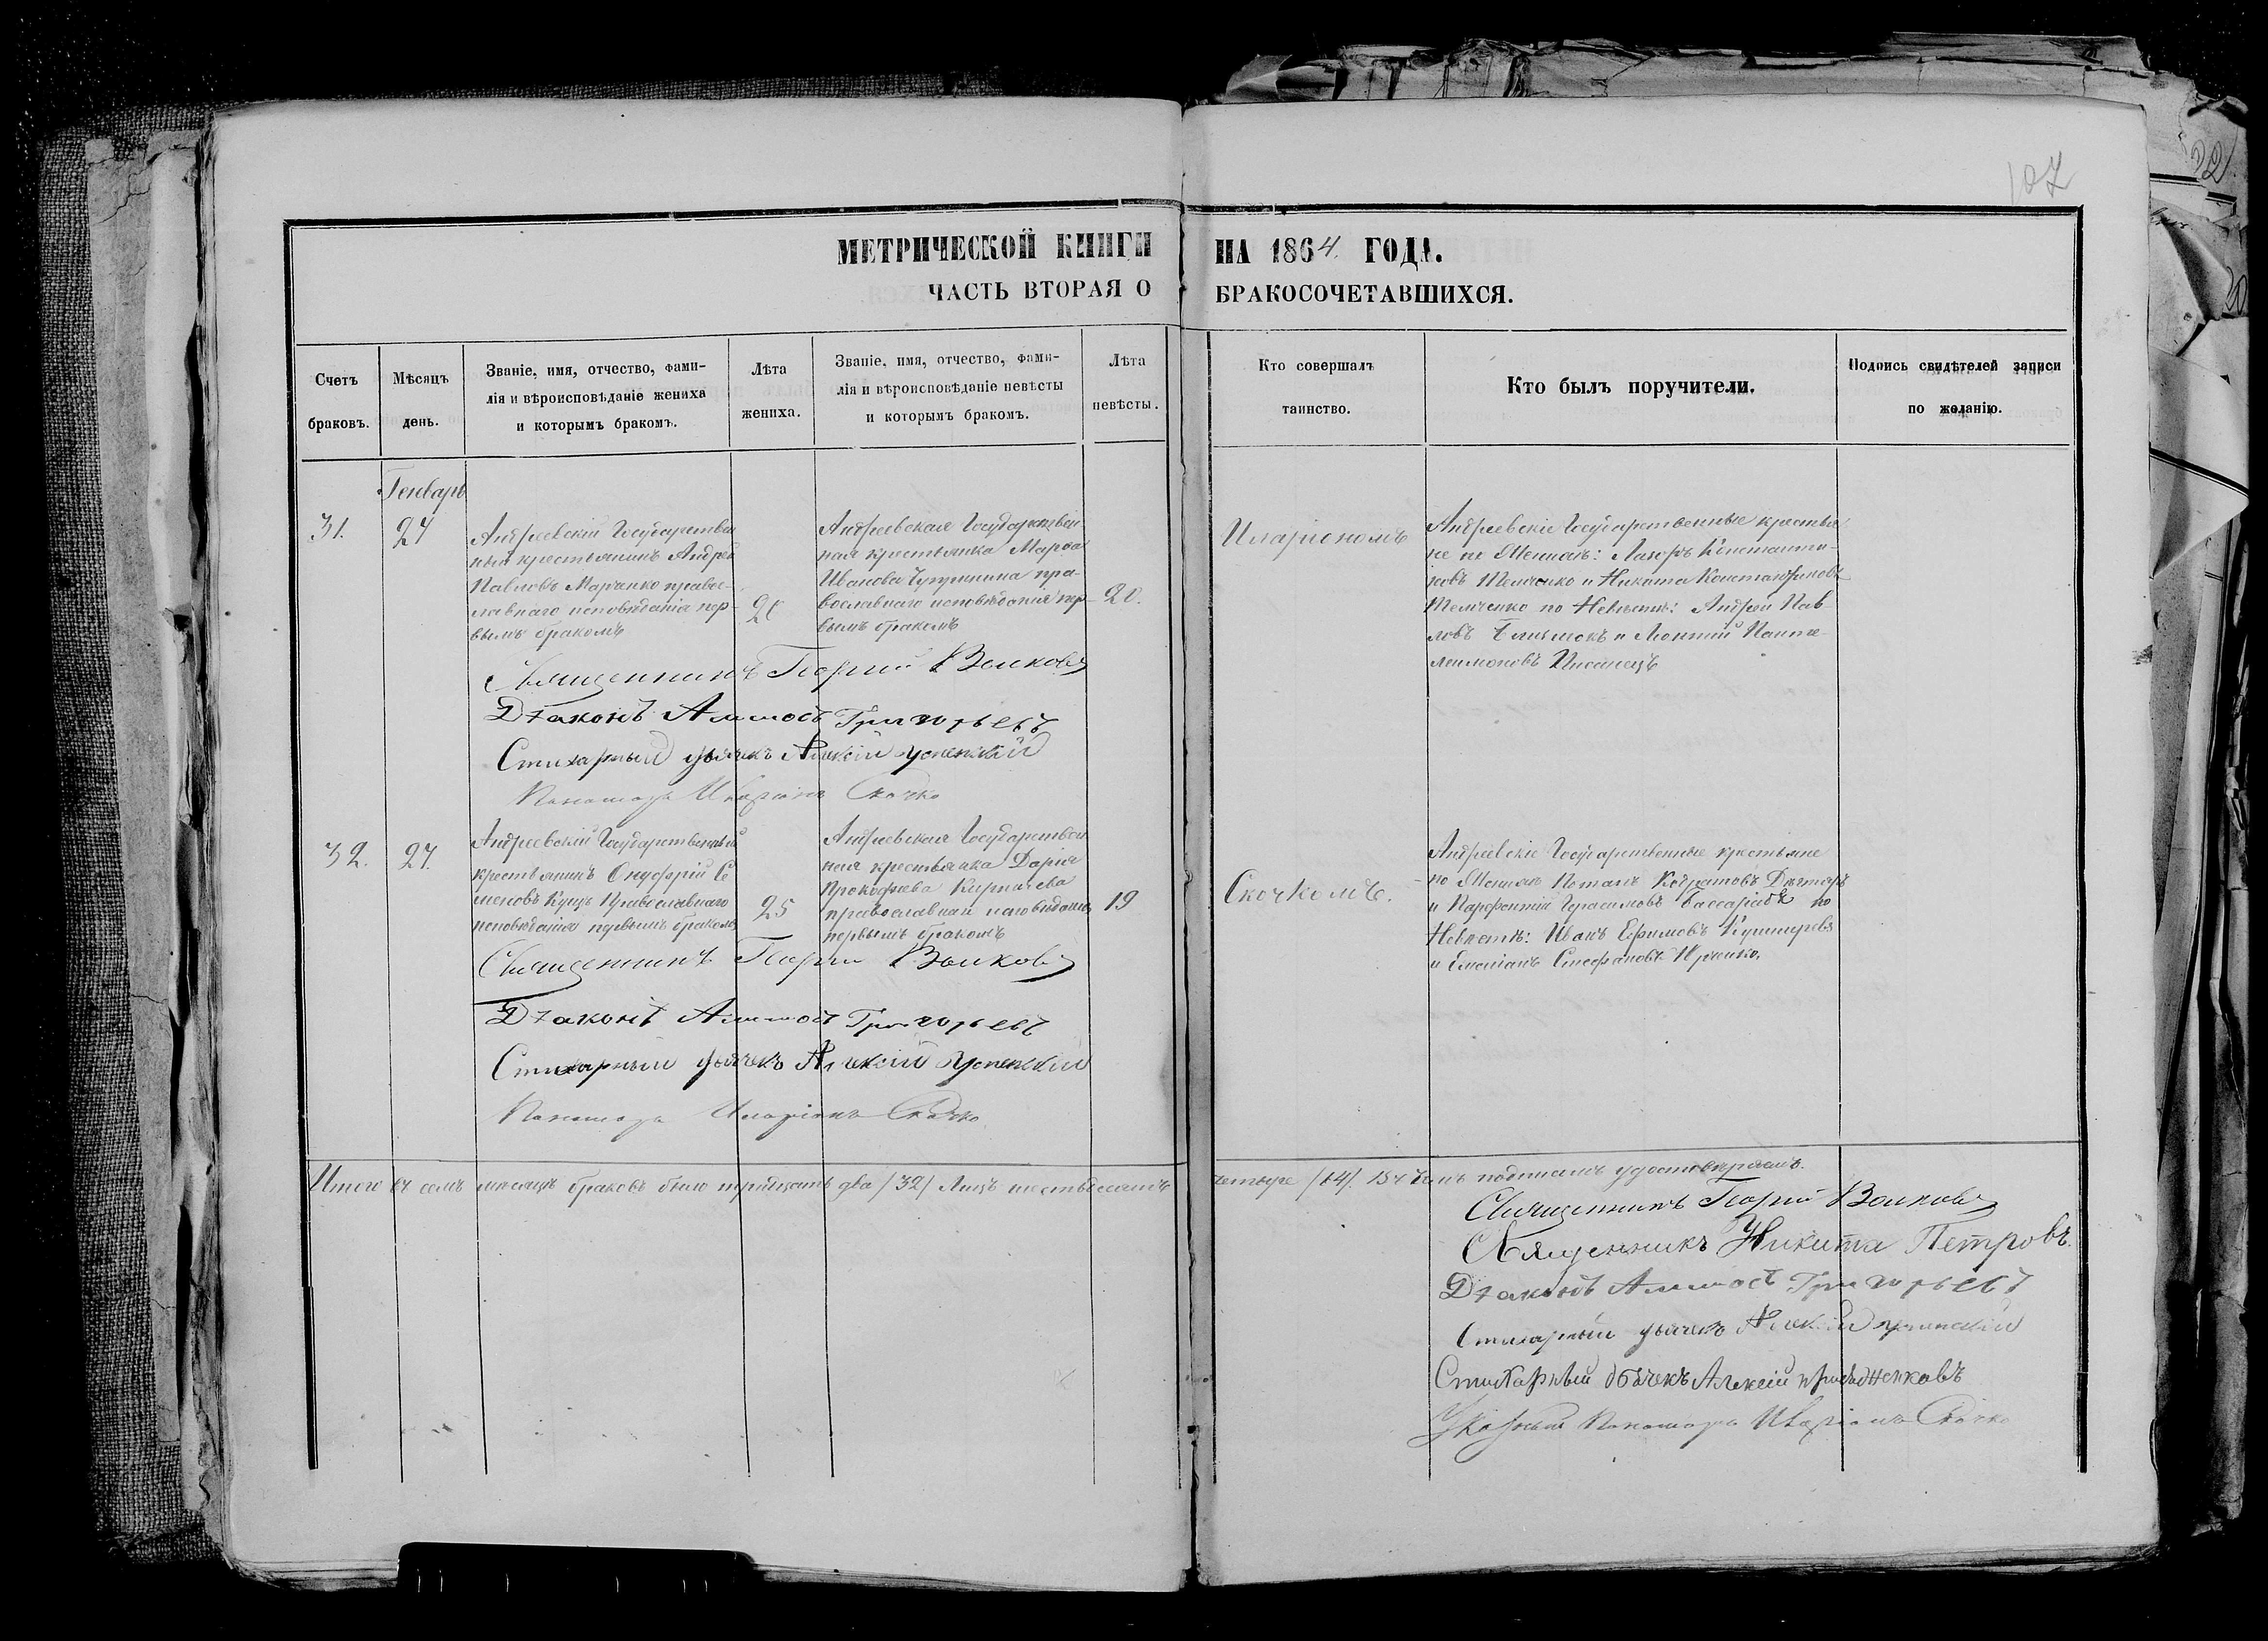 107
МЕТРИЧЕСКОЙ КНИГИ НА 1864. ГОДА.
ЧАСТЬ ВТОРАЯ О БРАКОСОЧЕТАВШИХСЯ.
Счетъ браковъ.
Мѣсяцъ день.
Званіе, имя, отчество, фами-
лія и вѣроисповѣданіе жениха
и которымъ бракомъ.
Лѣта жениха.
Званіе, имя, отчество, фами-
лія и вѣроисповѣданіе невѣсты
и которымъ бракомъ.
Лѣта невѣсты.
Кто совершалъ таинство.
Кто былъ поручители.
Подпись свидѣтелей записи
по желанію.
Генварь
31.
27
Андреевскій Государствен
ный крестьянинъ Андрей
Павловъ Марченко правос-
лавнаго исповѣданія пер-
вымъ бракомъ
20
Андреевская Государствен
ная крестьянка Марфа
Иванова пра-
вославнаго исповѣданія пер-
вымъ бракомъ
20.
Иларіономъ
Андреевскіе Государственные крестья
не по Женихѣ: Лазорь Константи-
новъ Темченко и Никита Константиновъ
Темченко по Невѣстѣ: Андрей Пав
ловъ и Леонтій Панте-
леимоновъ
Священникъ Георгій Волковъ
Діаконъ Аммосъ Григорьевъ
Стихарный дьячекъ Алексій Успенскій
Пономарь Иларіонъ Скочко
32.
27.
Андреевскій Государственный
крестьянинъ Онуфрій Се
меновъ Куцъ Православнаго
исповѣданія первымъ бракомъ
25
Андреевская Государствен
ная крестьянка Дарія
Прокофиева
православнаго исповѣданія
первымъ бракомъ
19
Скочкомъ.
Андреевскіе Государственные крестьяне
по Женихѣ Потапъ Кодратовъ
и Парфентій Герасимовъ Бассарабъ по
Невѣстѣ: Иванъ Ефимовъ
и Емеліанъ Стефановъ
Священникъ Георгій Волковъ
Діаконъ Аммосъ Григорьевъ
Стихарный дьячекъ Алексій Успенскій
Пономарь Иларіонъ Скочко
Итого въ семъ мѣсяцѣ браковъ было тридцать два /32/ Лицъ шестьдесятъ четыре /64/. въ чемъ подписомъ удостовѣряемъ.
Священникъ Георгій Волковъ
Священникъ Никита Петровъ.
Діаконъ Аммосъ Григорьевъ
Стихарный дьячекъ Алексій Успенскій
Стихарный дьячекъ Алексій
Указный Пономарь Иларіонъ Скочко